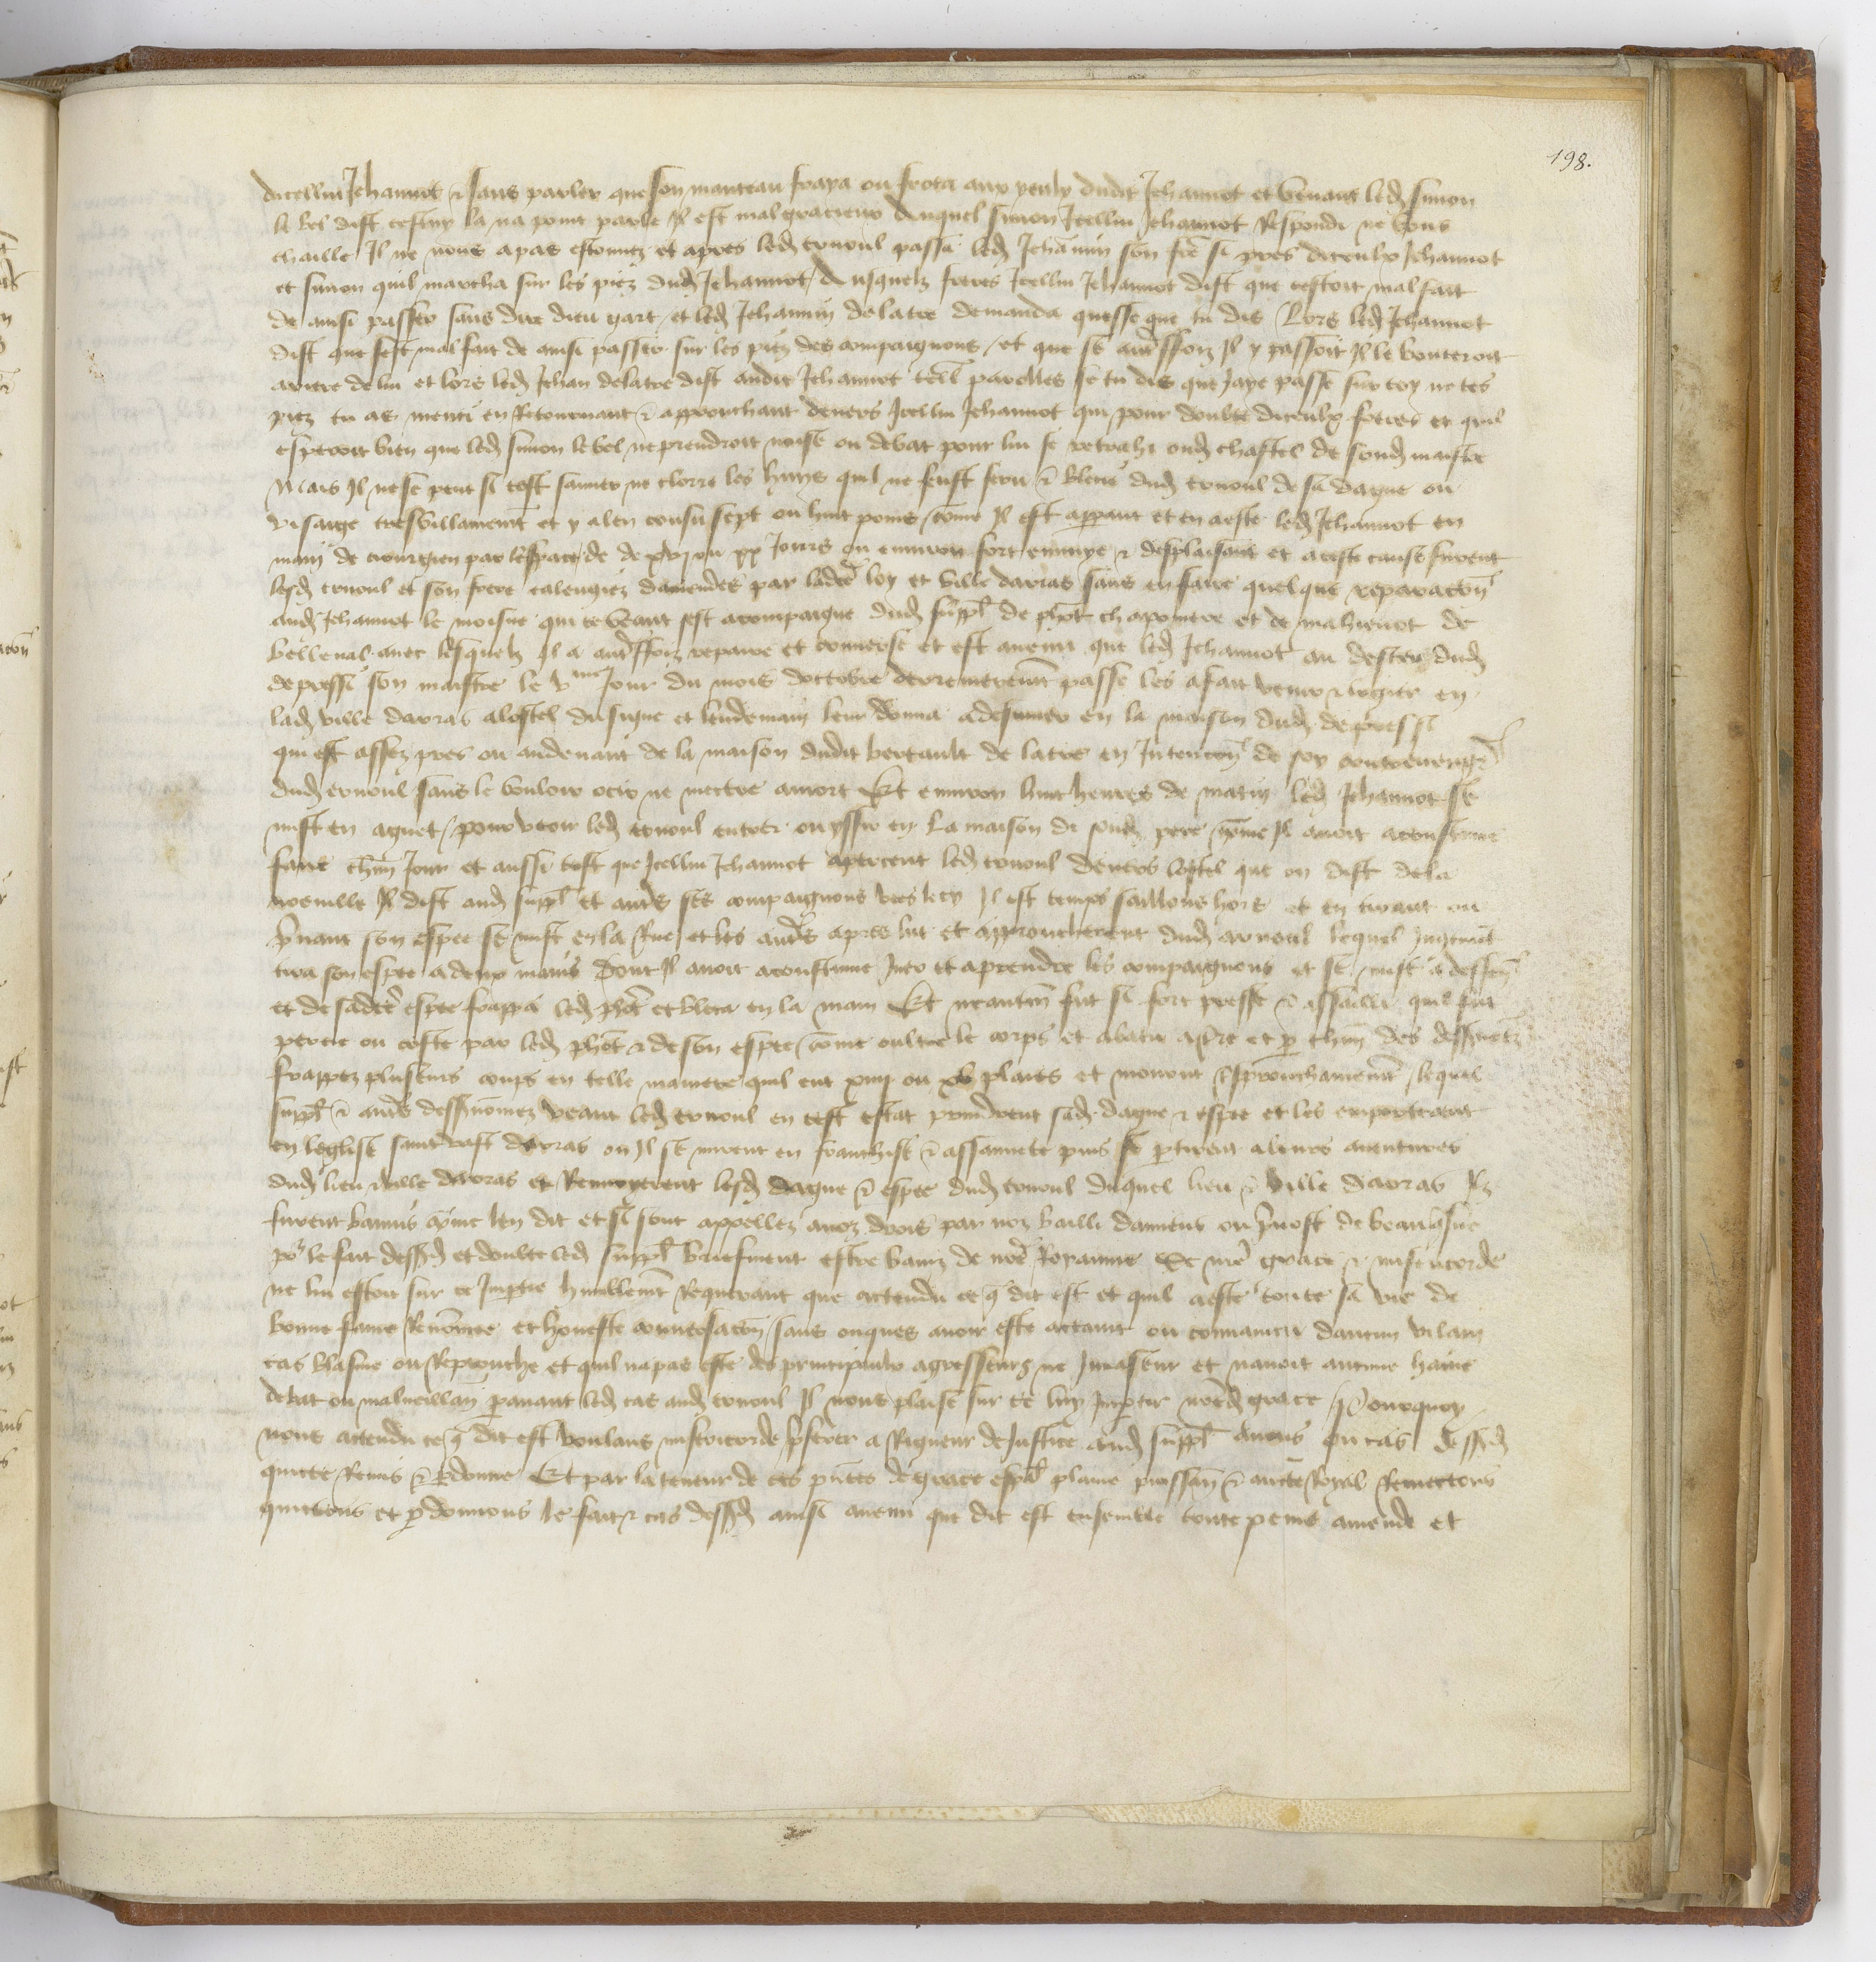 198.
dicellui Jehannot & sans parler que son manteau fraya ou frota aux yeulx dudit Jehannot et venant led Simon
le bel dist cestuy la na point parle Il est mal gracieux Auquel Simon Icellui Jehannot Respondi ne vous
chaille Il ne nous a pas et apres led ernoul passa led Jehannin son fre si pres diceulx Jehannot
et Simon quil marcha sur les piez dud Jehannot / Ausquelz freres Icellui Jehannot dist que cestoit mal fait
de ainsi passer sans dire dieu gart / et led Jehannin delatre demanda quesse que tu dis / Lors led Jehannot
dist que cest mal fait de ainsi passer sur les piez des compaignons / et que se autreffoiz Il y passoit Il le bouteroit
arriere de lui et lors led Jehan delatre dist audit Jehannot telles parolles se tu dis que Jaye passe sur toy ne tes
piez tu as menti en Retournant & approuchant devers Icellui Jehannot qui pour doubte diceulx freres et quil
esperoit bien que led Simon le bel ne prendroit noise ou debat pour lui se retrahi oud chastel de soud maistre
Mais Il ne se peut si tost sauver ne clorre les huys quil ne feust feru & blecie dud ernoul de sa dague ou
visaige tresvillainement et y a len cousu sept ou huit poins come Il est apparant et en a este led Jehannot en
main de cirurgien par lespace de de xvj ou xx Jours ou environ fort ennuye & desplaisant et a ceste cause furent
lesd ernoul et son frere calengiez damendes par ladicte loy et ville darras sans en faire quelque reparacion
aud Jehannot le moisne qui ce veant sest acompaigne dud suppl de phot chapoutre et de mahienot de
bellenal avec lesquelz Il a autreffoiz repaire et converse et est avenu que led Jehannot au desceu dud
depressi son maistre le vme Jour du mois doctobre derrenierement passe les a fait venir & logier en
lad ville darras a lostel du signe et lendemain leur donna a desiuner en la maison dud depressi
qui est assez pres ou audevant de la maison dudit bertault de latre en Intencion de soy contrevenger
dud ernoul sans le vouloir ocir ne mectre a mort Et environ huit heures de matin led Jehannot se
mist en aguet / pour veoir led ernoul entrer ou yssir en La maison de soud pere come Il avoit acoustume
faire chun Jour et aussi tost que Icellui Jehannot apercent led ernoul devers lostel que on dist dela
noeuille Il dist aud suppl et autres ses compaignons vees le cy Il est temps saillons hors et en tirant ou
prnant son espee se mist en la Rue et les autres apres lui et approucherent dud arnoul lequel
tira son espee a deux mains Dont Il avoit acoustume Juer et aprendre les compaignons et se mist a deffen
et de sadicte espee frappa led phot et bleca en la main Et neantm fut si fort presse & assailli quil fut
percie ou coste par led phot & de son espee / come oultre le corps et abatu a tre et p chun des dessnomez
frappez plusieurs coups en telle maniere quil eut xiiij ou xv plaies et mourut Prouchainement / lequel
suppl & autres dessnomez veant led ernoul en cest estat prindrent sad dague & espee et les emporterent
en leglise saint vast darras ou Il se mirent en franchise & assauuete puis se ptirent a leurs aventures
dud lieu & ville darras et Renvoyerent lesd dague & espee dud ernoul duquel lieu & ville darras Ilz
furent bannis come len dit et si sont appellez a noz drois par noz bailli damiens ou pvost de beauquesne
por le fait dessd et doubte led suppl briefment estre baniz de nre Royaume Se nre grace & misericorde
ne lui estoit sur ce Impartie humblement Requerant que actendu ce q dit est et quil a este toute sa vie de
bonne fame Renommee et honneste conversacion sans onques avoir este actaint ou convaincu daucun vilain
cas blasme ou Reprouche et quil na pas este des principaulx agresseurs ne Invaseur et navoit aucune haine
debat ou malveillan pavant led cas aud ernoul Il nous plaise sur ce luy Impartir nred grace / Pourquoy
nous actendu ce q dit est voulans misericorde preferer a Rigueur de Justice aud suppl avons ou cas dessd
quicte Remis & pdonne Et par la teneur de ces pntes de grace espal plaine puissan & aucte Royal Remectons
quictons et pdonnons le fait & cas dessd ainsi avenu que dit est ensemble toute peine amende et